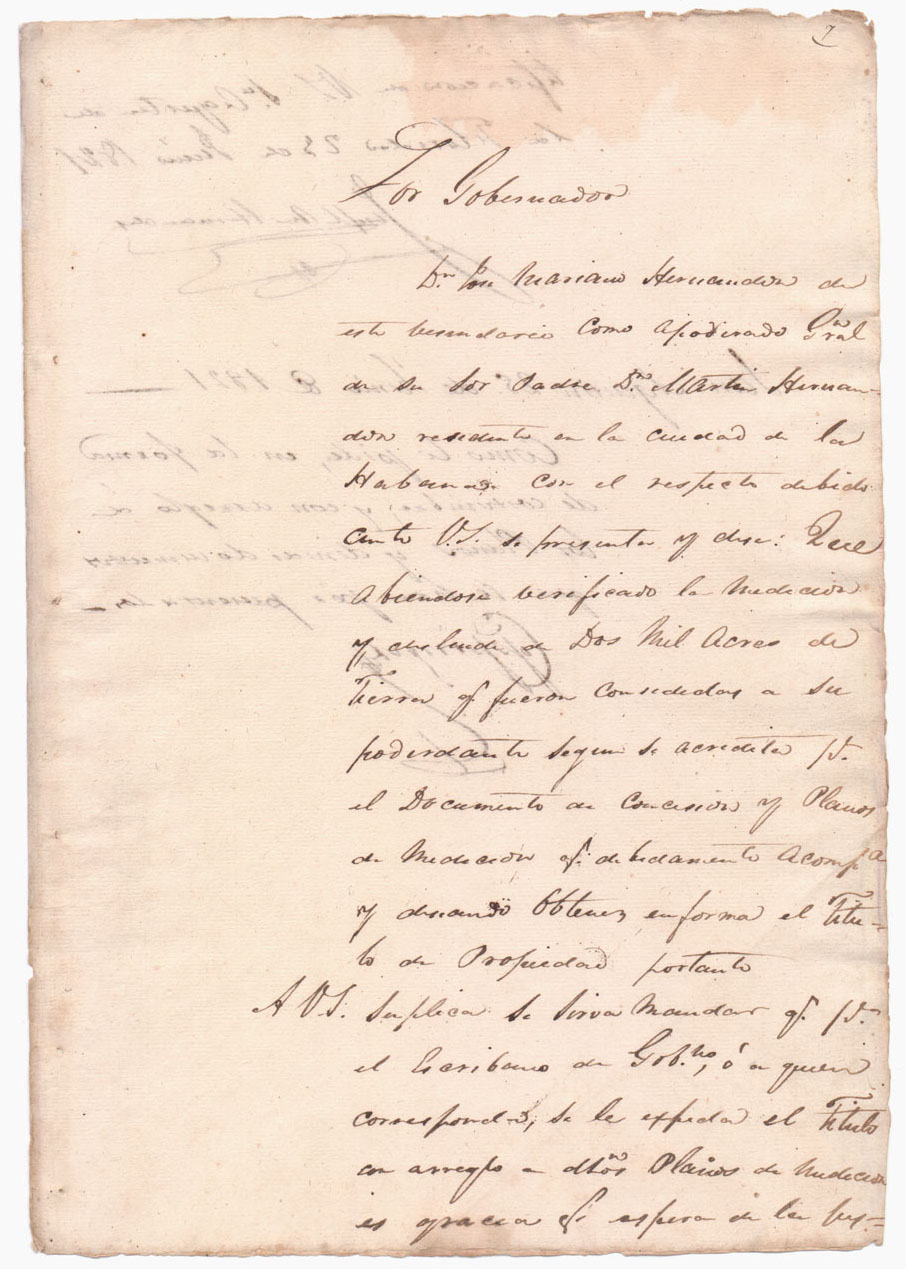 7
Sor Gobernador
Dn. Jose Mariano Hernandes de
este besindario como apoderado Gral
de su Sor Padre Dn. Martin Hernan-
des residente en la ciudad de la
Habana con el respecto debido
ante V.S. se presenta y dise: Que
abiendose berificado la medicion
y deslinde de Dos Mil Acres de
Tierra q. fueron consedidas a su
poderdante segun se acredita pr.
el Documento de Concesion y Planos
de Medicion q. debidamente acompa
y deseando Obtener en forma el Titu-
lo de Propiedad portanto
A V.S. Suplica se sirva mandar q. pr.
el Escribano de Gob.no, ó a quien
corresponda, se le expida el Titulo
con arreglo a dhos Planos de Medicion
es gracia q. espera de la jus-